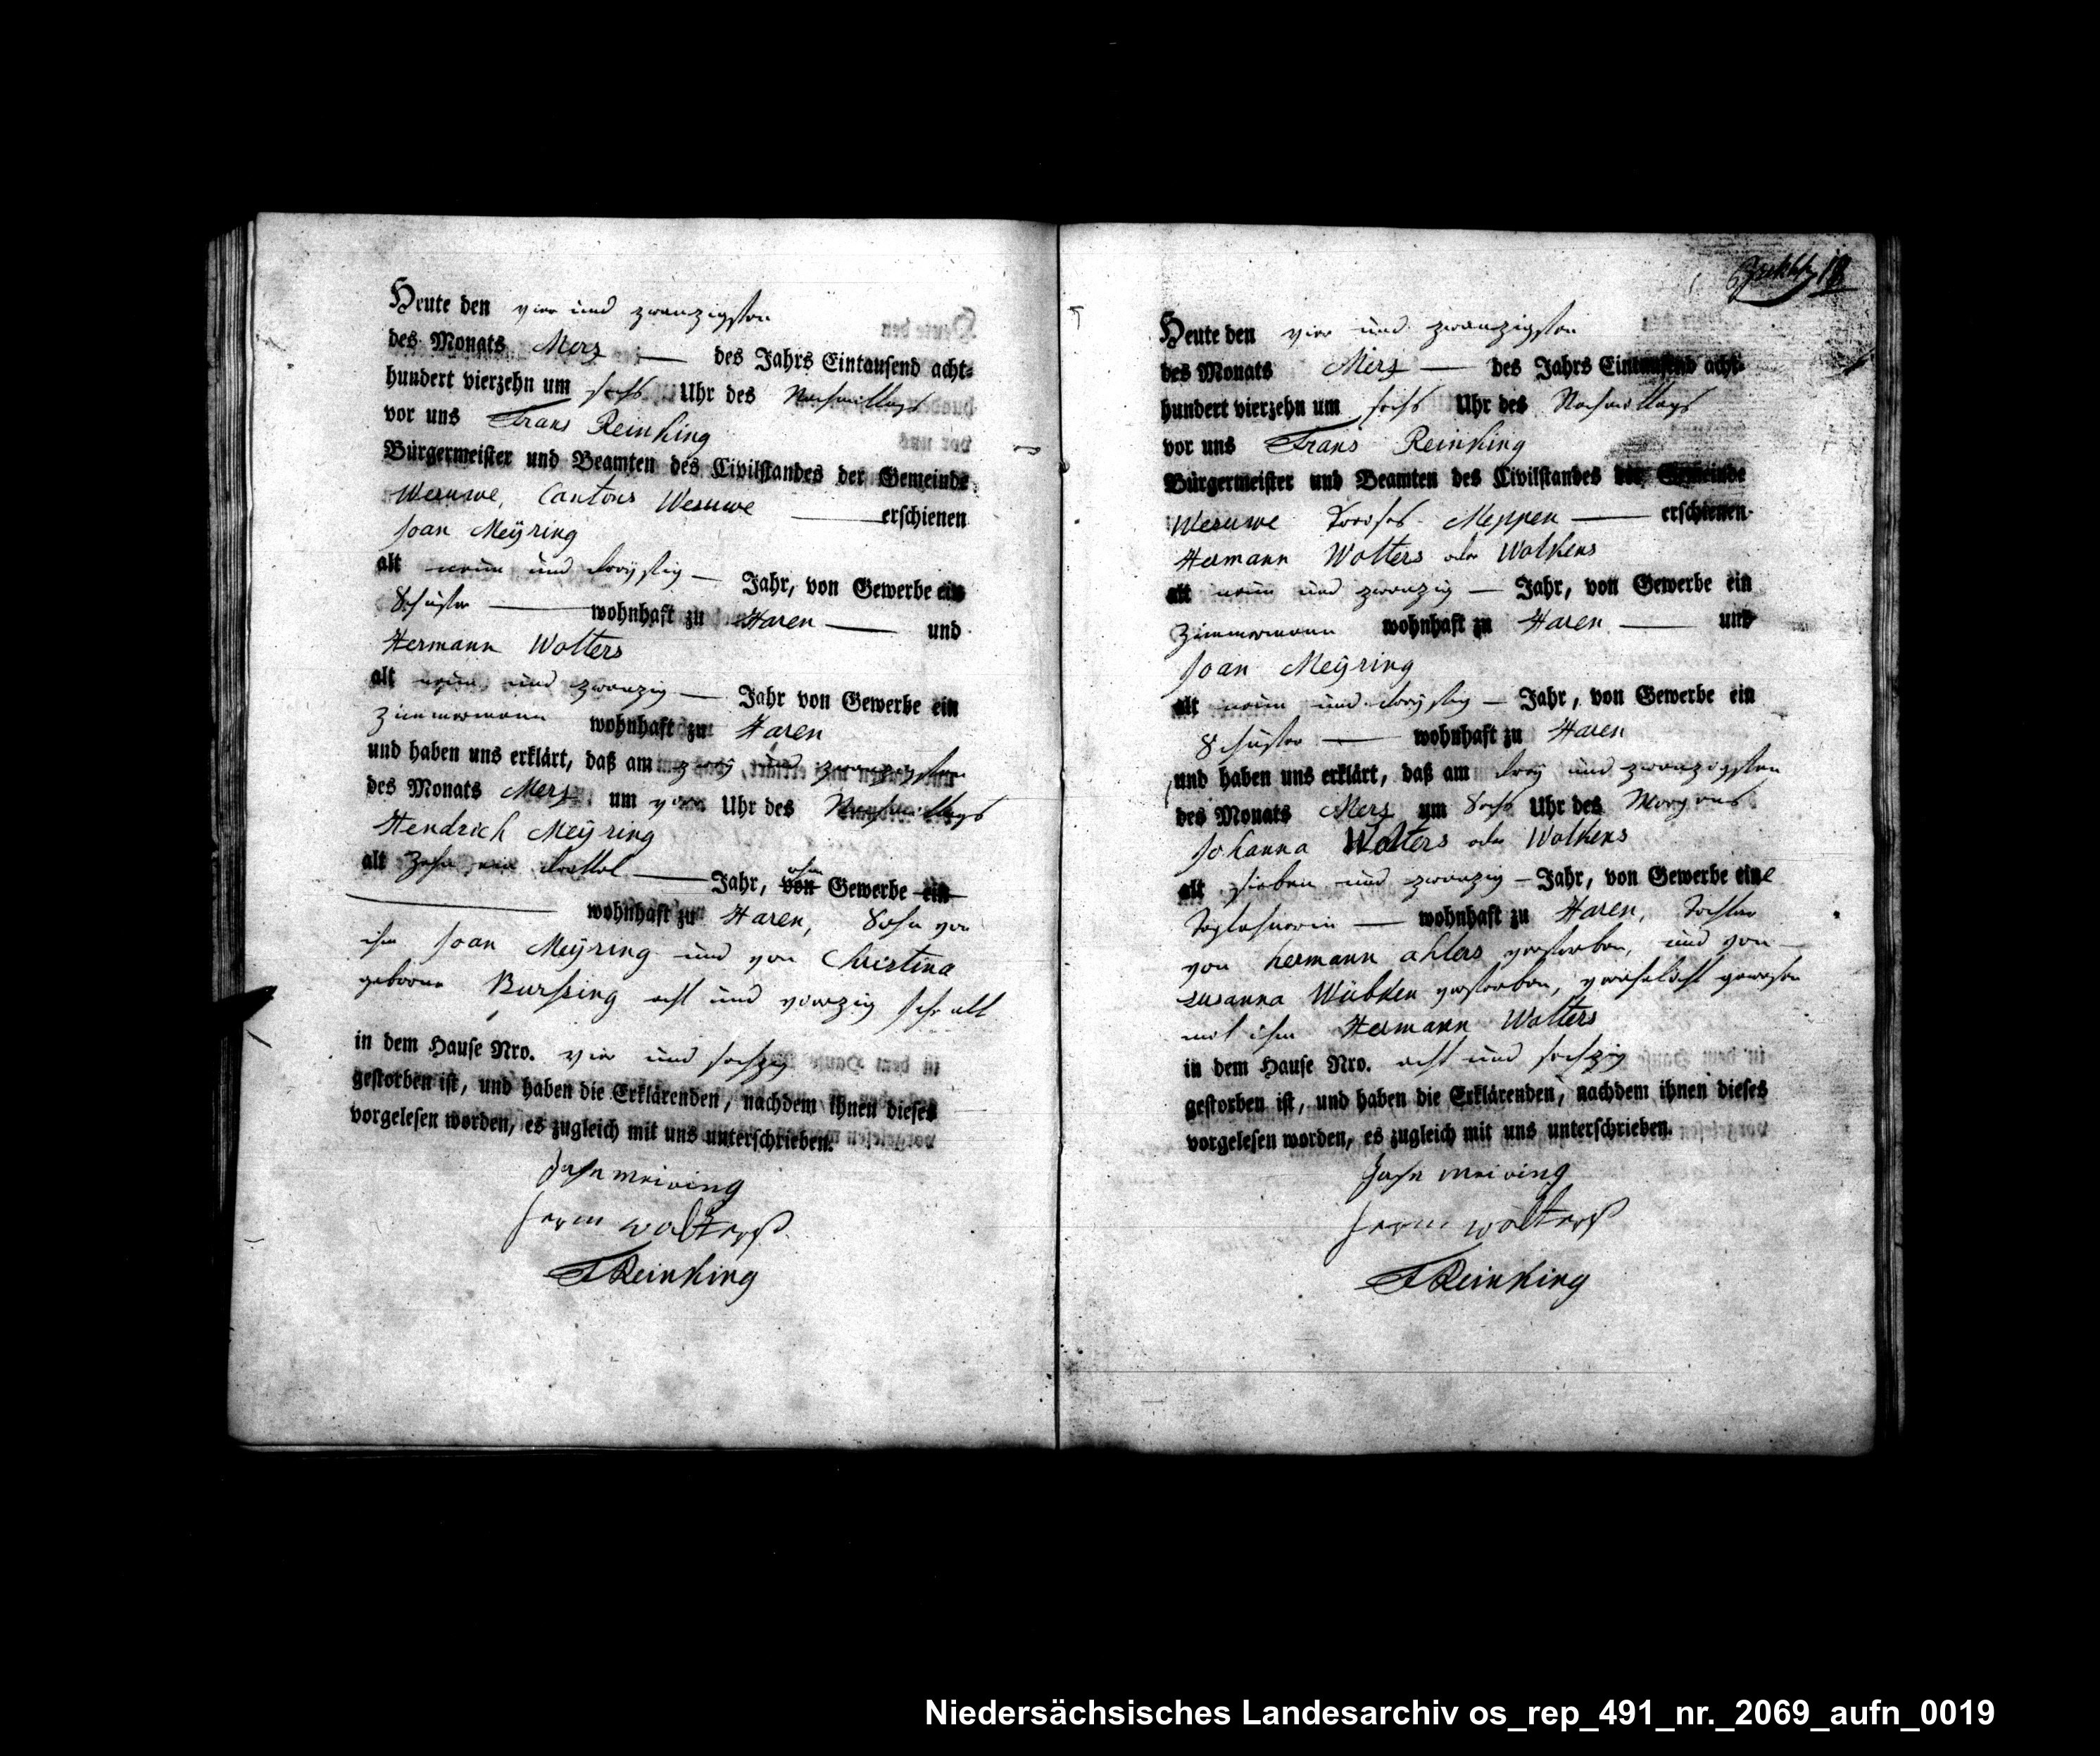 Heute den vier und zwanzigsten
des Monats Merz — des Jahrs Eintausend acht-
hundert vierzehn um sechs Uhr des Nachmittags
vor uns Frans Reinking
Bürgermeister und Beamten des Civilstandes der Gemeinde
Wesuwe, Cantons Wesuwe — erschienen
Joan Meÿring
alt neun und dreÿstig — Jahr, von Gewerbe ein
Schuster — wohnhaft zu Haren — und
Hermann Wolters
alt neun und zwanzig — Jahr von Gewerbe ein
Zimmermann wohnhaft zu Haren
und haben uns erklärt, daß am zweÿ und zwanzigsten
des Monats Merz um vier Uhr des Nachmittags
Hendrich Meÿring
alt Zehn ein drittel — Jahr, von ohne Gewerbe ein
— wohnhaft zu Haren, Sohn von
ihm Joan Meÿring und von Christina
geborne Burssing acht und vierzig Jahr alt
in dem Hause Nro. vier und sechzig
gestorben ist, und haben die Erklärenden, nachdem ihnen dieses
vorgelesen worden, es zugleich mit uns unterschrieben.
Jahn meiring
herm wolterß
FReinking
18
Heute den vier und zwanzigsten
des Monats Merz — des Jahrs Eintausend acht-
hundert vierzehn um sechs Uhr des Nachmittags
vor uns Frans Reinking
Bürgermeister und Beamten des Civilstandes der Gemeinde
Wesuwe Kreises Meppen — erschienen
Hermann Wolters oder Wolkens
alt neun und zwanzig — Jahr, von Gewerbe ein
Zimmermann wohnhaft zu Haren — und
Joan Meÿring
alt neun und dreÿstig — Jahr, von Gewerbe ein
Schuster — wohnhaft zu Haren
und haben uns erklärt, daß am dreÿ und zwanzigsten
des Monats Merz um Sechs Uhr des Morgens
Johanna Wolters oder Wolkens
alt sieben und zwanzig — Jahr, von Gewerbe eine
Taglohnerin — wohnhaft zu Haren, Tochter
von hermann ahlers verstorben, und von —
susanna Wübken verstorben, verehelicht gewesen
mit ihm Hermann Wolters
in dem Hause Nro. acht und sechzig
gestorben ist, und haben die Erklärenden, nachdem ihnen dieses
vorgelesen worden, es zugleich mit uns unterschrieben.
Jahn meiring
herm wolterß
FReinking
Niedersächsisches Landesarchiv os_rep_491_nr._2069_aufn_0019